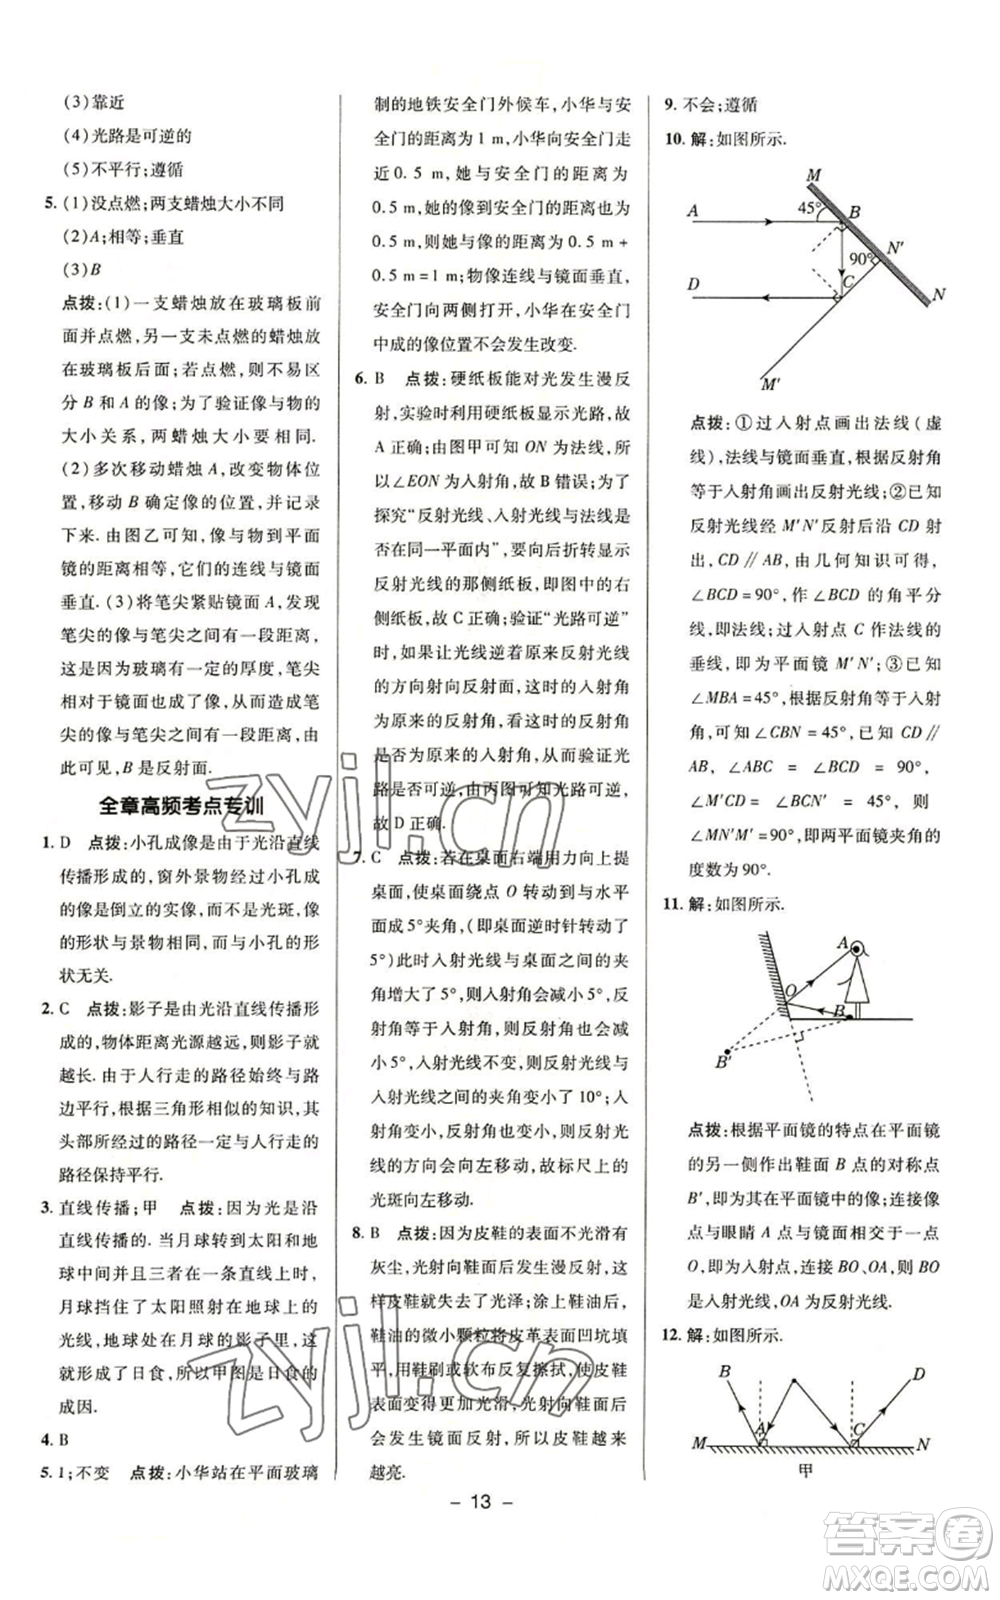 (3)靠近
(4)光路是可逆的
(5)不平行;遵循
5. (1)没点燃;两支蜡烛大小不同
(2)A;相等;垂直
(3)B
点拨:(1)一支蜡烛放在玻璃板前
面并点燃,另一支未点燃的蜡烛放
在玻璃板后面;若点燃,则不易区
分 B 和 A 的像;为了验证像与物的
大小关系,两蜡烛大小要相同.
(2)多次移动蜡烛 A,改变物体位
置,移动 B 确定像的位置,并记录
下来.由图乙可知,像与物到平面
镜的距离相等,它们的连线与镜面
垂直.(3)将笔尖紧贴镜面 A,发现
笔尖的像与笔尖之间有一段距离,
这是因为玻璃有一定的厚度,笔尖
是通过镜面成了像,然后像与笔
尖的像与笔尖之间有一段距离,由
此可见,B 是反射面.
全章高频考点专训
1. D 点拨:小孔成像是由于光沿直线
传播形成的,窗外景物经过小孔成
的像是倒立的实像,而不是光斑,像
的形状与景物相同,而与小孔的形
状无关.
2. C 点拨:影子是由光沿直线传播形
成的,物体距离光源越远,则影子
越长.由于人行走的路径始终与路
边平行,根据三角形相似的知识,其
头部所经过的路径一定与人行走的
路径保持平行.
3. 直线传播;甲 点拨:因为光是沿
直线传播的.当月球转到太阳和地
球中间并且三者在一条直线上时,
月球挡住了太阳照射在地球上的
光线,地球处在月球的影子里,这
时发生日食,所以甲图是日食的
成因.
4. B
5. 1;不变 点拨:小华站在平面玻璃
制的地铁安全门外候车,小华与安
全门的距离为 1 m,小华向安全门走
近 0.5 m,她与安全门的距离为
0.5 m,她的像到安全门的距离也为
0.5 m,则她与像的距离为 0.5 m +
0.5 m = 1 m;物像连线与镜面垂直,
安全门向两侧打开,小华在安全门
中成的像位置不会发生改变.
6. B 点拨:硬纸板能对光发生漫反
射,实验时利用硬纸板显示光路,故
A 正确;由图甲可知 ON 为法线,所
以∠EON 为入射角,故 B 错误;为
了探究“反射光线、入射光线与法线是
否在同一平面内”,应向后折转显示
反射光线的那侧纸板,即图中的右
侧纸板,故 C 正确;验证“光路可逆”
时,如果让光线逆着原来反射光线
的方向射向反射面,这时的入射角
为原来的反射角,看这时的反射角
是否为原来的入射角,即可验证光
路是否可逆,由两图可知光路可逆,
故 D 正确.
7. C 点拨:若在桌面右端用力向上提
桌面,使桌面绕点 O 转动到与水平
面成 5°夹角,(即桌面逆时针转动了
5°)此时入射光线与法线的夹
角增大了 5°,入射角变小;由于反射
角等于入射角,则反射角也会减
小 5°,入射光线不变,则反射光线与
入射光线的夹角变小了 10°;入射
角变小,反射角变小,所以反射光
线的方向会向左移动,故标尺上的
光斑向左移动.
8. B 点拨:因为皮鞋的表面不光滑有
灰尘,光射向鞋面后发生漫反射,这
样皮鞋就失去了光泽;涂上鞋油后,
鞋油的微小颗粒将皮革表面凹坑填
平,用鞋刷或软布反复擦拭,使皮鞋
的表面变得更加光滑,光射向鞋面
后会发生镜面反射,所以皮鞋越来
越亮.
9. 不会;遵循
10. 解:如图所示.
M
45°
A
B
90°
N′
D
C
N
M′
点拨:①过入射点画出法线(虚
线),法线与镜面垂直,根据反射角
等于入射角画出反射光线;②已知
反射光线经 M′N′反射后沿 CD 射
出,CD∥AB,由几何知识可得,
∠BCD=90°,作∠BCD 的角平分
线,即法线;过入射点 C 作法线的
垂线,即为平面镜 M′N′;③已知
∠MBA=45°,根据反射角等于入射
角,可知∠CBN=45°,因为 CD∥
AB,∠ABC=∠BCD=90°,
∠M′CD=∠BCN′=45°,则
∠MN′M′=90°,即两平面镜夹角的
度数为 90°.
11. 解:如图所示.
A
O
B
B′
点拨:根据平面镜的特点在平面镜
的另一侧作出鞋面 B 点的对称点
B′,即为其在平面镜中的像;连接像
点与眼睛 A 点与镜面相交于一点
O,即为入射点,连接 BO、OA,则 BO
是入射光线,OA 为反射光线.
12. 解:如图所示.
B
D
M
A
C
N
甲
– 13 –
zyjl.cn
zyjl.cn
答案圈
MXQE.COM